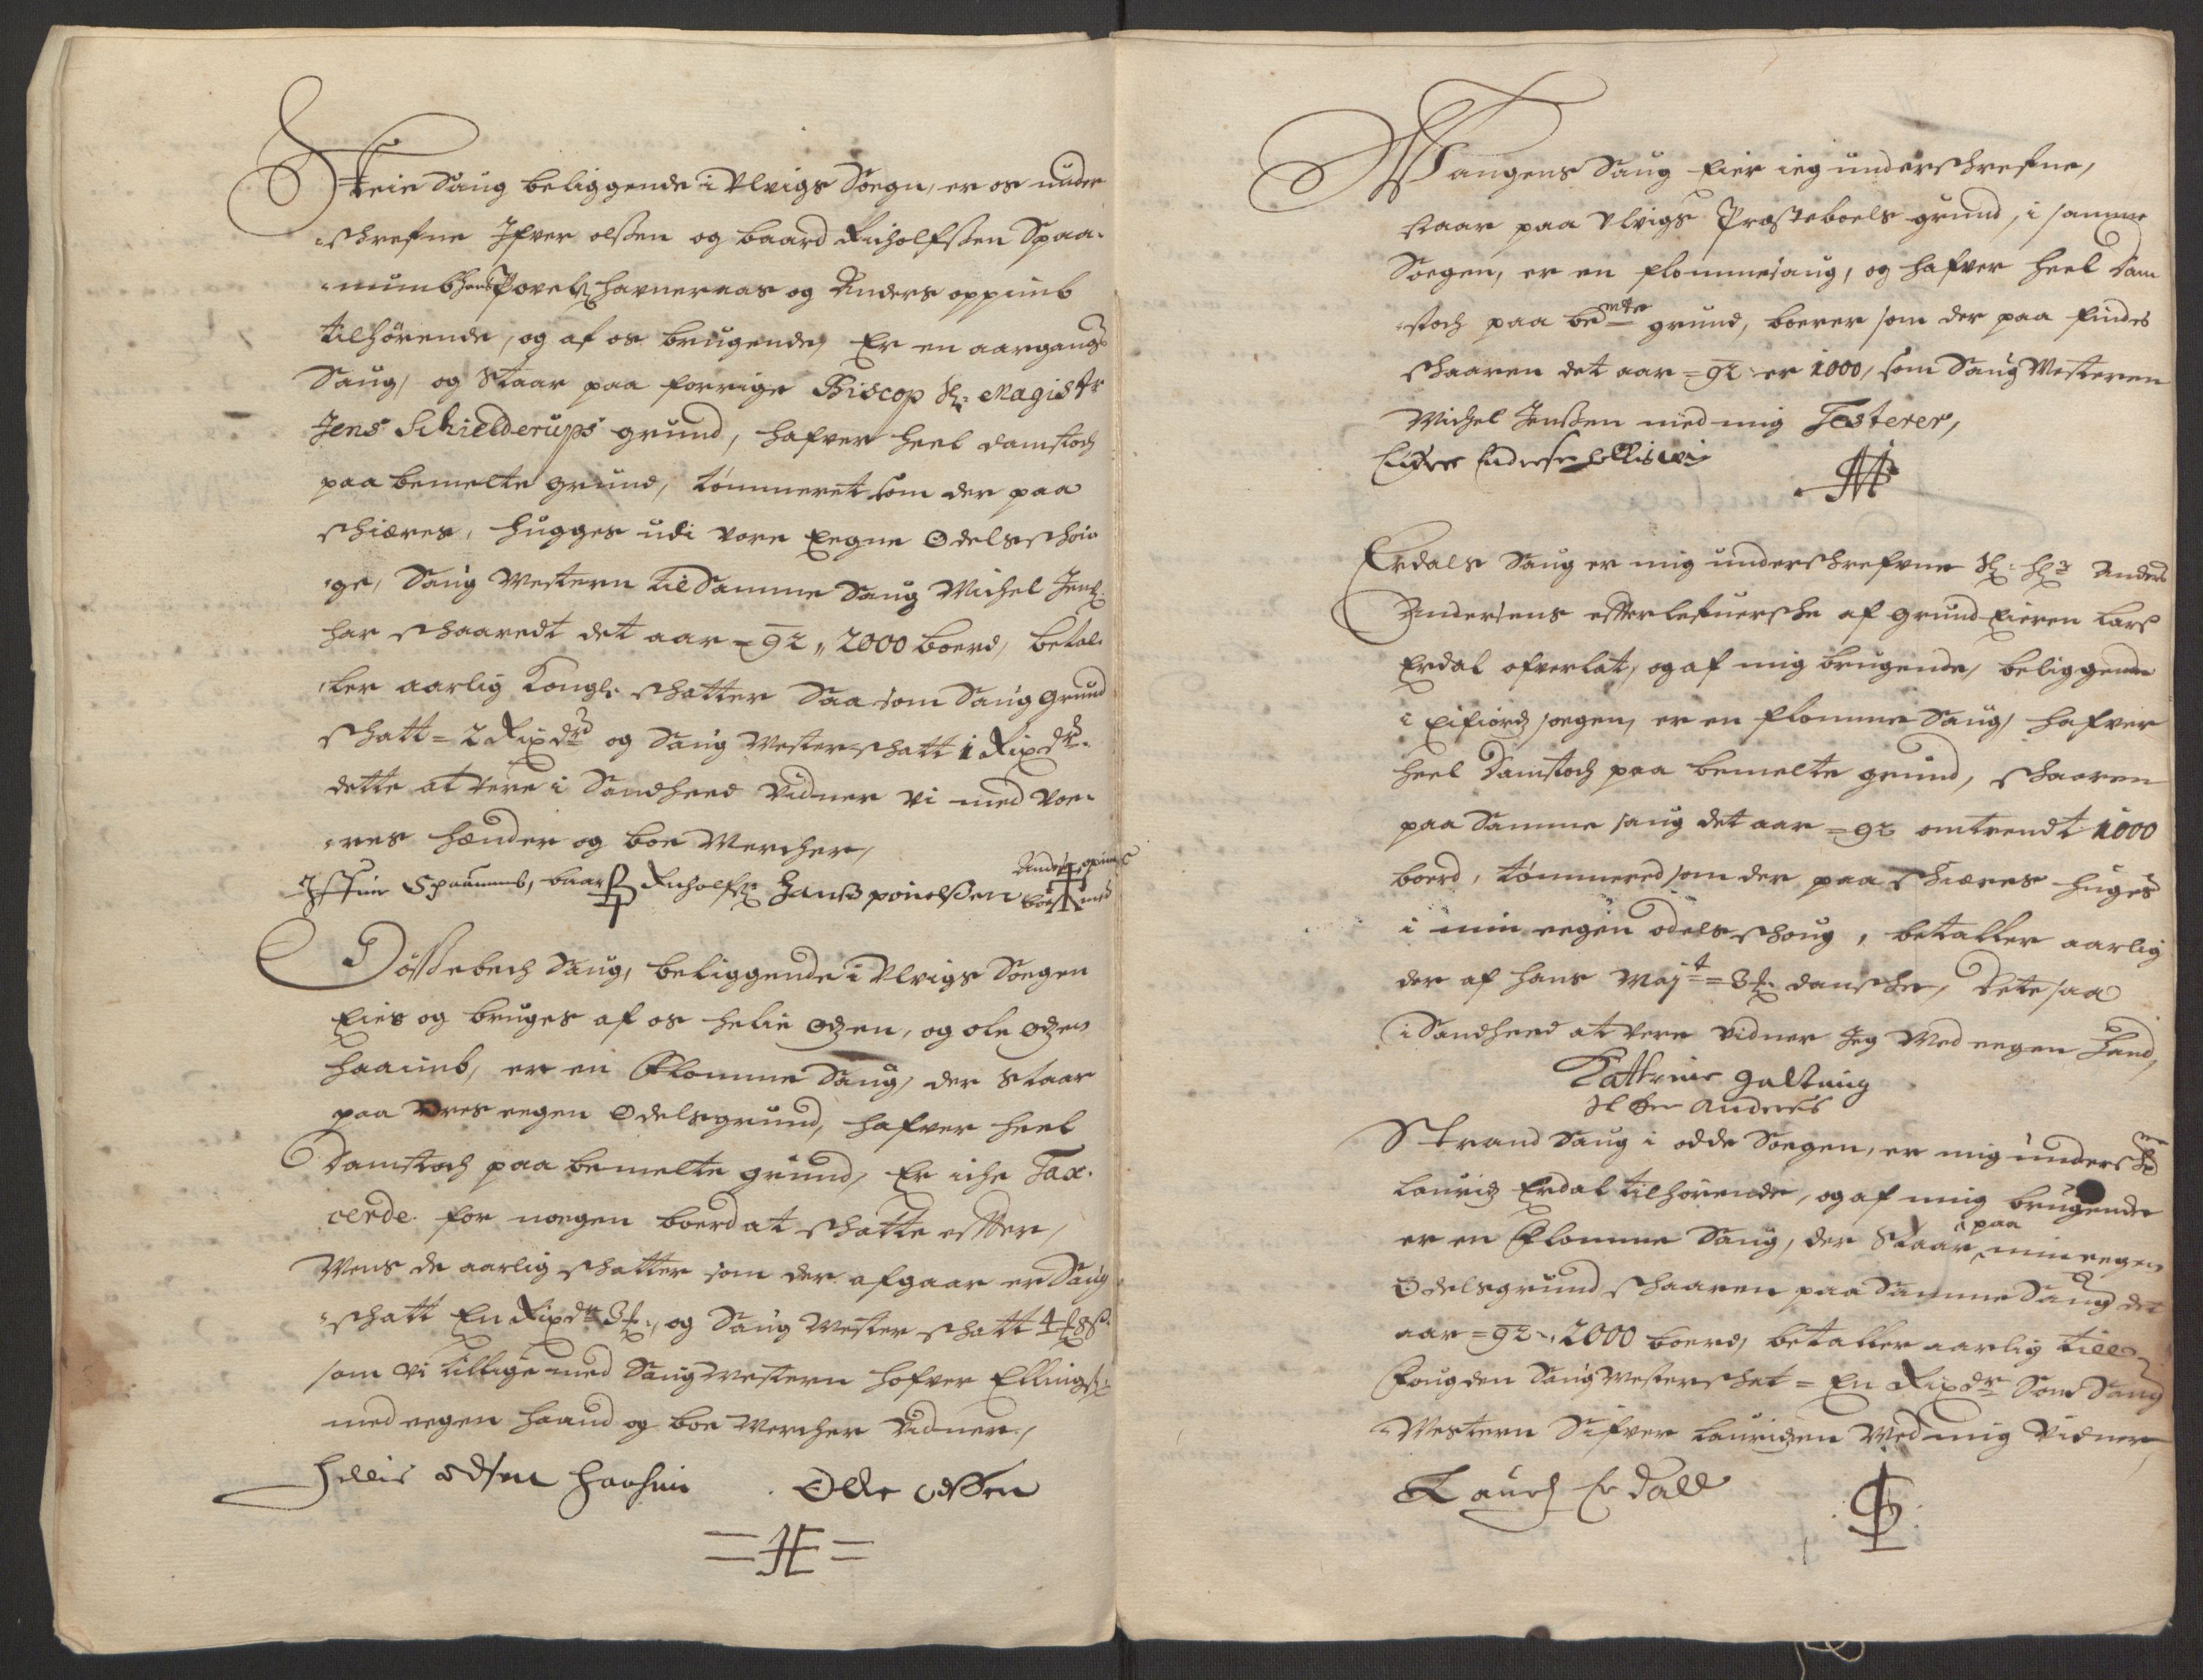 Steie Saug beliggende i Ulvigs Soegn, er os under
schrefne Ifver olsen og baard Richolfsen Spaa-
numb hans Povels havneraas og Anders oppimb
tilhörende, og af os brugende, Er en aargangs
Saug, og Staar paa forrige Biscop Sl: Magistr
Jens Schielderups grund, hafver heel damstoch
paa bemelte grund, tömmeret som der paa
schiæres, hugges udi vore Eegne Odelsschou
ge, Saug Mestern til Samme Saug Michel Jens:
har schaaredt det aar = 92 " 2000 boerd, betal-
ler aarlig Kongl: schatter Saa som Saug grund
schatt = 2 Rixdr og Saug Mesterschatt 1 Rixdr.
dette at vere i Sandheed Vidner vi med voe-
res hænder og boe Mercher,
Iffuer Spaanumb, baard Richolfs: Hans pouelsen Anders opimb
boe merch
Dössebech Saug, beliggende i Ulvigs Soegen
Eies og bruges af os helie Odzen, og ole Odzen
haaimb, er en Flomme Saug, der Staar
paa Vores eegen Odelsgrund, hafver heel
Damstoch paa bemelte grund, Er iche Tax-
cerde for noegen boerd at schatte effter,
Mens de aarlig schatter som der afgaar er Saug
schatt En Rixdr 3 , og Saug Mester schatt 4 8 s
som vi tillige med Saug Mestern hofver Ellings:
med eegen haand og boe Mercher Vidner,
Hellie odsen haaheim Olle odssen
= HE =
Wangens Saug Eier ieg underschrefne,
staar paa Ulvigs Præsteboels grund, i samme
Soegen, er en flommesaug, og hafver heel dam
stoch paa bemte grund, boerer som der paa findes
schaaren det aar = 92 er 1000, som Saug Mesteren
Michel Jensen med mig Testerer,
Endresen
Erdals Saug er mig underschrefvne Sl: Hr Anders
Andersens effterlefuersche af grund Eieren Lars
Erdal ofverlat, og af mig brugende, beliggende
i Eifiords soegen, er en flomme Saug, hafver
heel Damstoch paa bemelte grund, schaaren
paa Samme saug det aar = 92 omtrendt 1000
boerd, tömmered som der paa schiæres huges
i min eegen odels schoug, betaller aarlig
der af hans Majt = 3 danscher, Dete saa
i Sandheed at vere vidner Jeg Med eegen Hand,
Kathrine galtung
Sl her Anders
Strand Saug i odde Soegen, er mig undersch
Lauridz Erdal tilhörende, og af mig brugende
er en Flomme Saug, der Staar paa min eegen
Odelsgrund schaaren paa Samme Saug det
aar = 92 -, 2000 boerd, betaller aarlig till
Fougden Saug Mesterschat = En Rixdr Som Saug
Mestern Sifver Lauridzen Med mig Vidner
Laurs Erdall